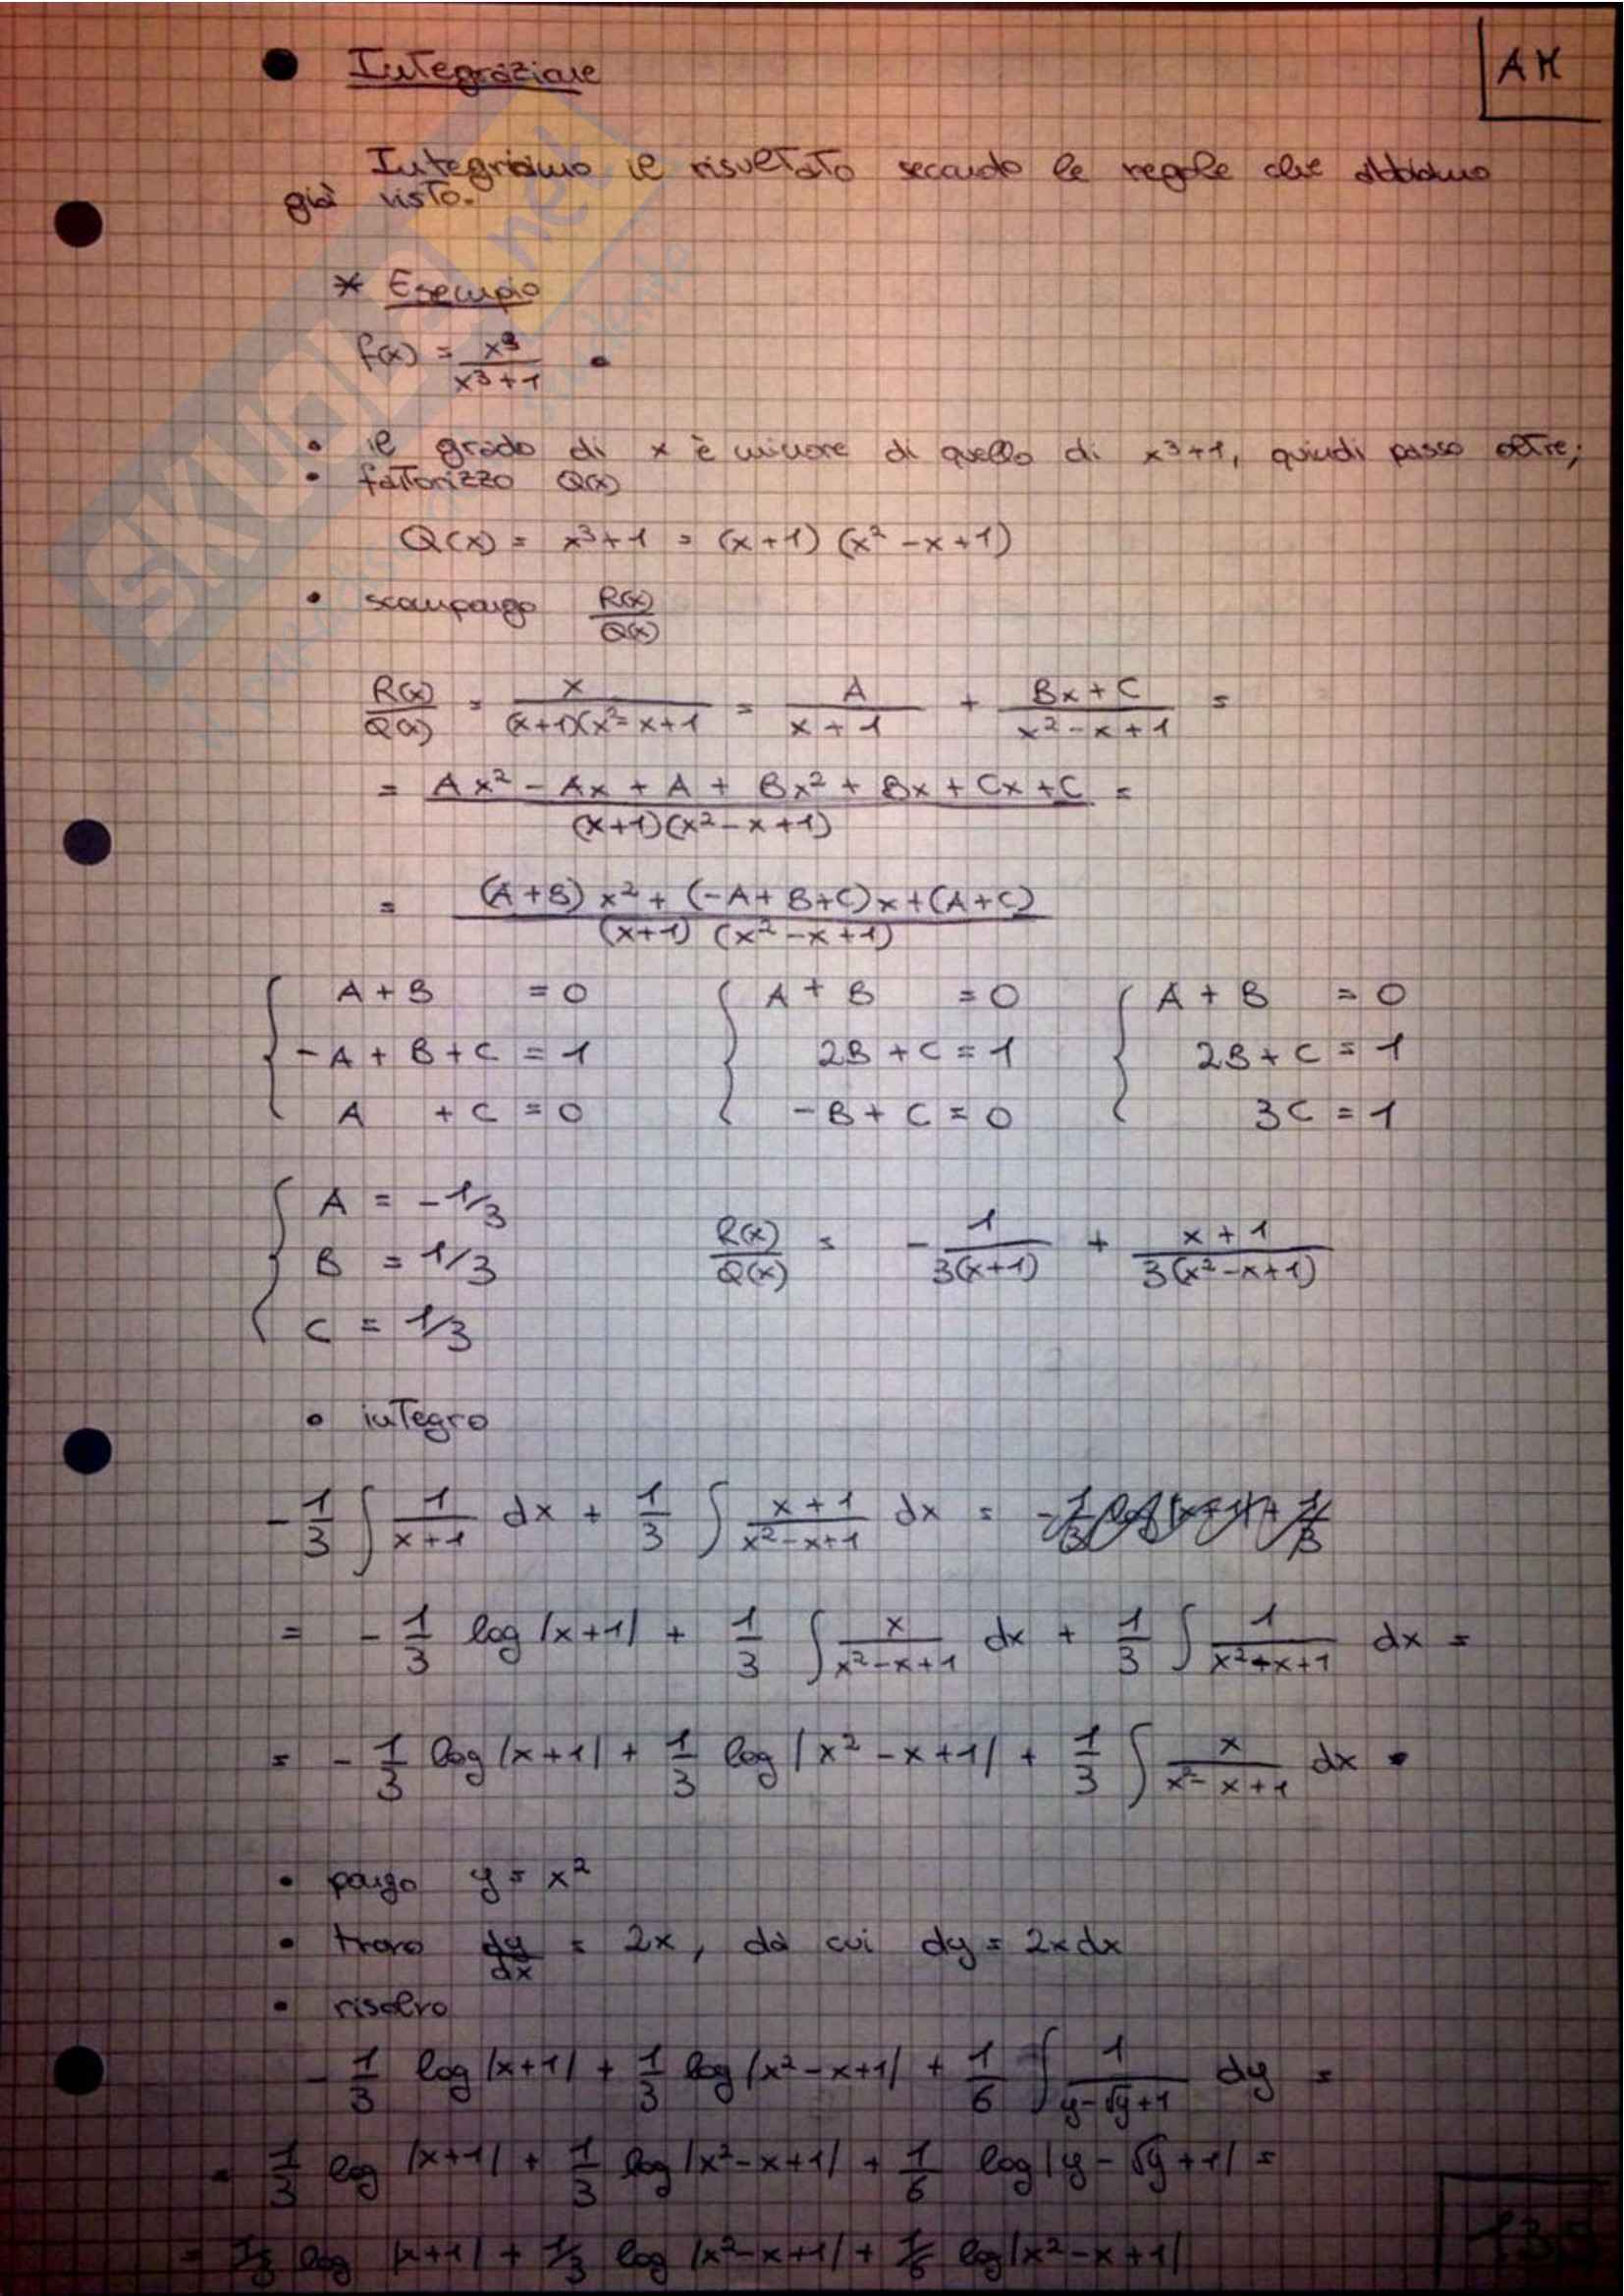 AM
• Integrazione
Integriamo il risultato secondo le regole che abbiamo
già visto.
* Esempio
f(x) = x³/(x³+1)
• il grado di x è minore di quello di x³+1, quindi passo oltre;
• fattorizzo Q(x)
Q(x) = x³+1 = (x+1) (x² -x +1)
• scompongo R(x)/Q(x)
R(x)/Q(x) = x/((x+1)(x²-x+1) = A/(x+1) + (Bx+C)/(x²-x+1) =
= (Ax² - Ax + A + Bx² + Bx + Cx + C)/((x+1)(x²-x+1)) =
= ((A+B) x² + (-A+B+C)x + (A+C))/((x+1) (x²-x+1))
{ A+B = 0 { A + B = 0 { A + B = 0
-A + B + C = 1 2B + C = 1 2B + C = 1
A + C = 0 -B + C = 0 3C = 1
{ A = -1/3
B = 1/3 R(x)/Q(x) = - 1/(3(x+1)) + (x+1)/(3(x²-x+1))
C = 1/3
• integro
- 1/3 ∫ 1/(x+1) dx + 1/3 ∫ (x+1)/(x²-x+1) dx =
= - 1/3 log |x+1| + 1/3 ∫ x/(x²-x+1) dx + 1/3 ∫ 1/(x²-x+1) dx =
= - 1/3 log |x+1| + 1/3 log |x² - x + 1| + 1/3 ∫ x/(x²-x+1) dx •
• pongo y = x²
• trovo dy/dx = 2x, da cui dy = 2x dx
• risolvo
- 1/3 log |x+1| + 1/3 log |x²-x+1| + 1/6 ∫ 1/(y-√y+1) dy =
= 1/3 log |x+1| + 1/3 log |x²-x+1| + 1/6 log |y-√y+1| =
= 1/3 log |x+1| + 1/3 log |x²-x+1| + 1/6 log |x²-x+1|
SKUOLA.net